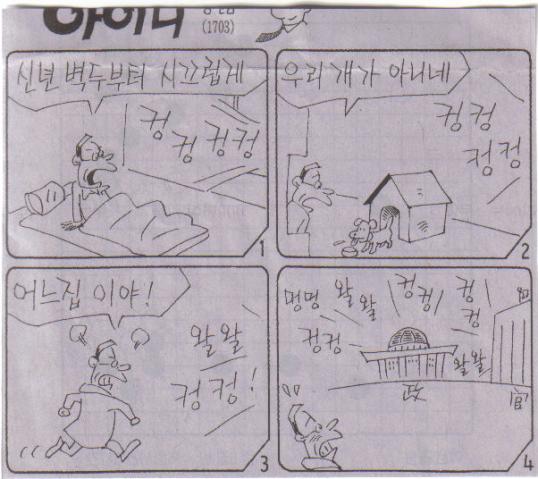 (1703)
신년 벽두부터 시끄럽게
컹
컹
컹컹
1
우리 개가 아니네
컹컹
컹컹
2
어느집 이야!
왈왈
컹컹!
3
멍멍
왈왈
컹컹
컹컹
컹컹
왈왈
4